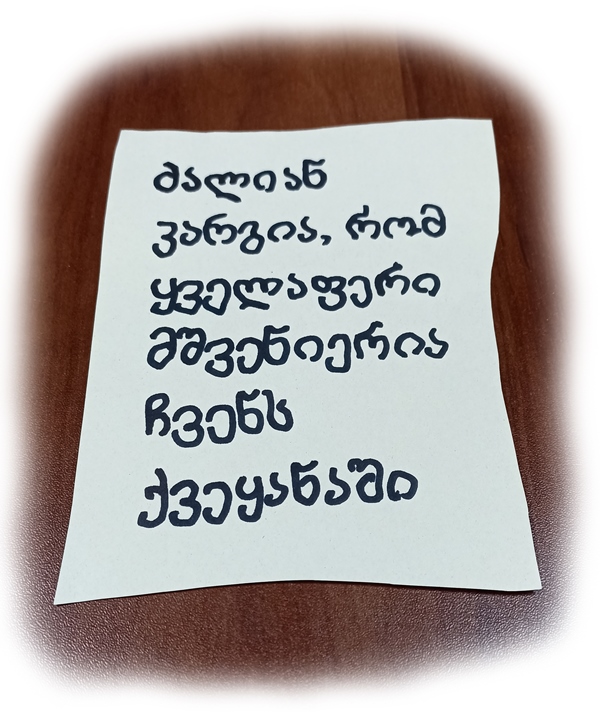 ძალიან
კარგია, რომ
ყველაფერი
მშვენიერია
ჩვენს
ქვეყანაში